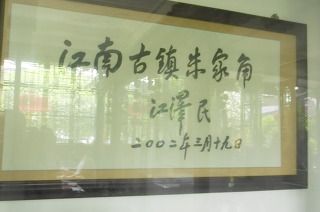 江南古镇朱家角
江澤民
二〇〇二年三月十九日